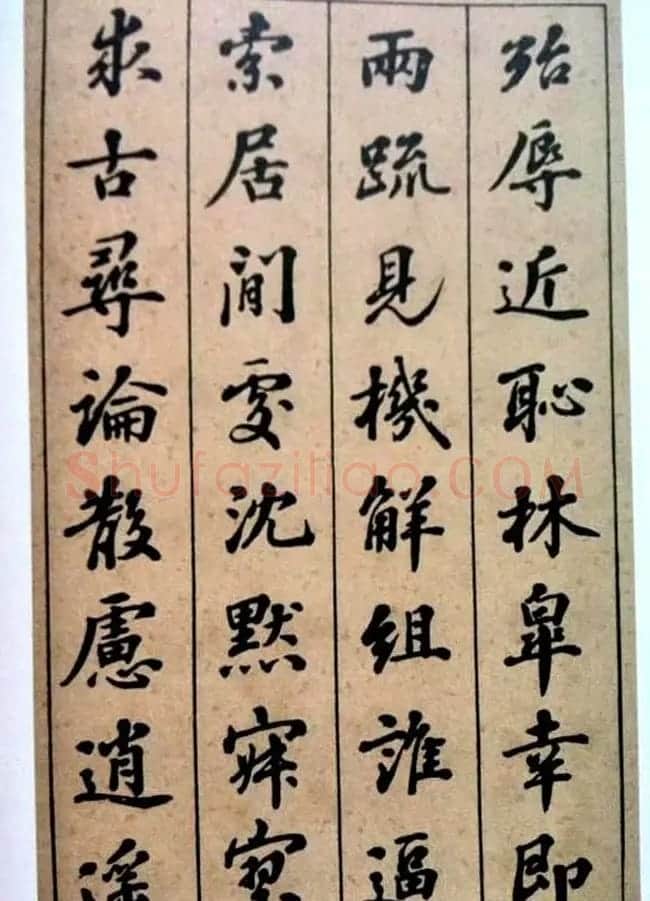 殆辱近恥林皐幸即
兩疏見機解組誰逼
索居閒處沈默寂寞
求古尋論散慮逍遥
Shufaziliao.COM